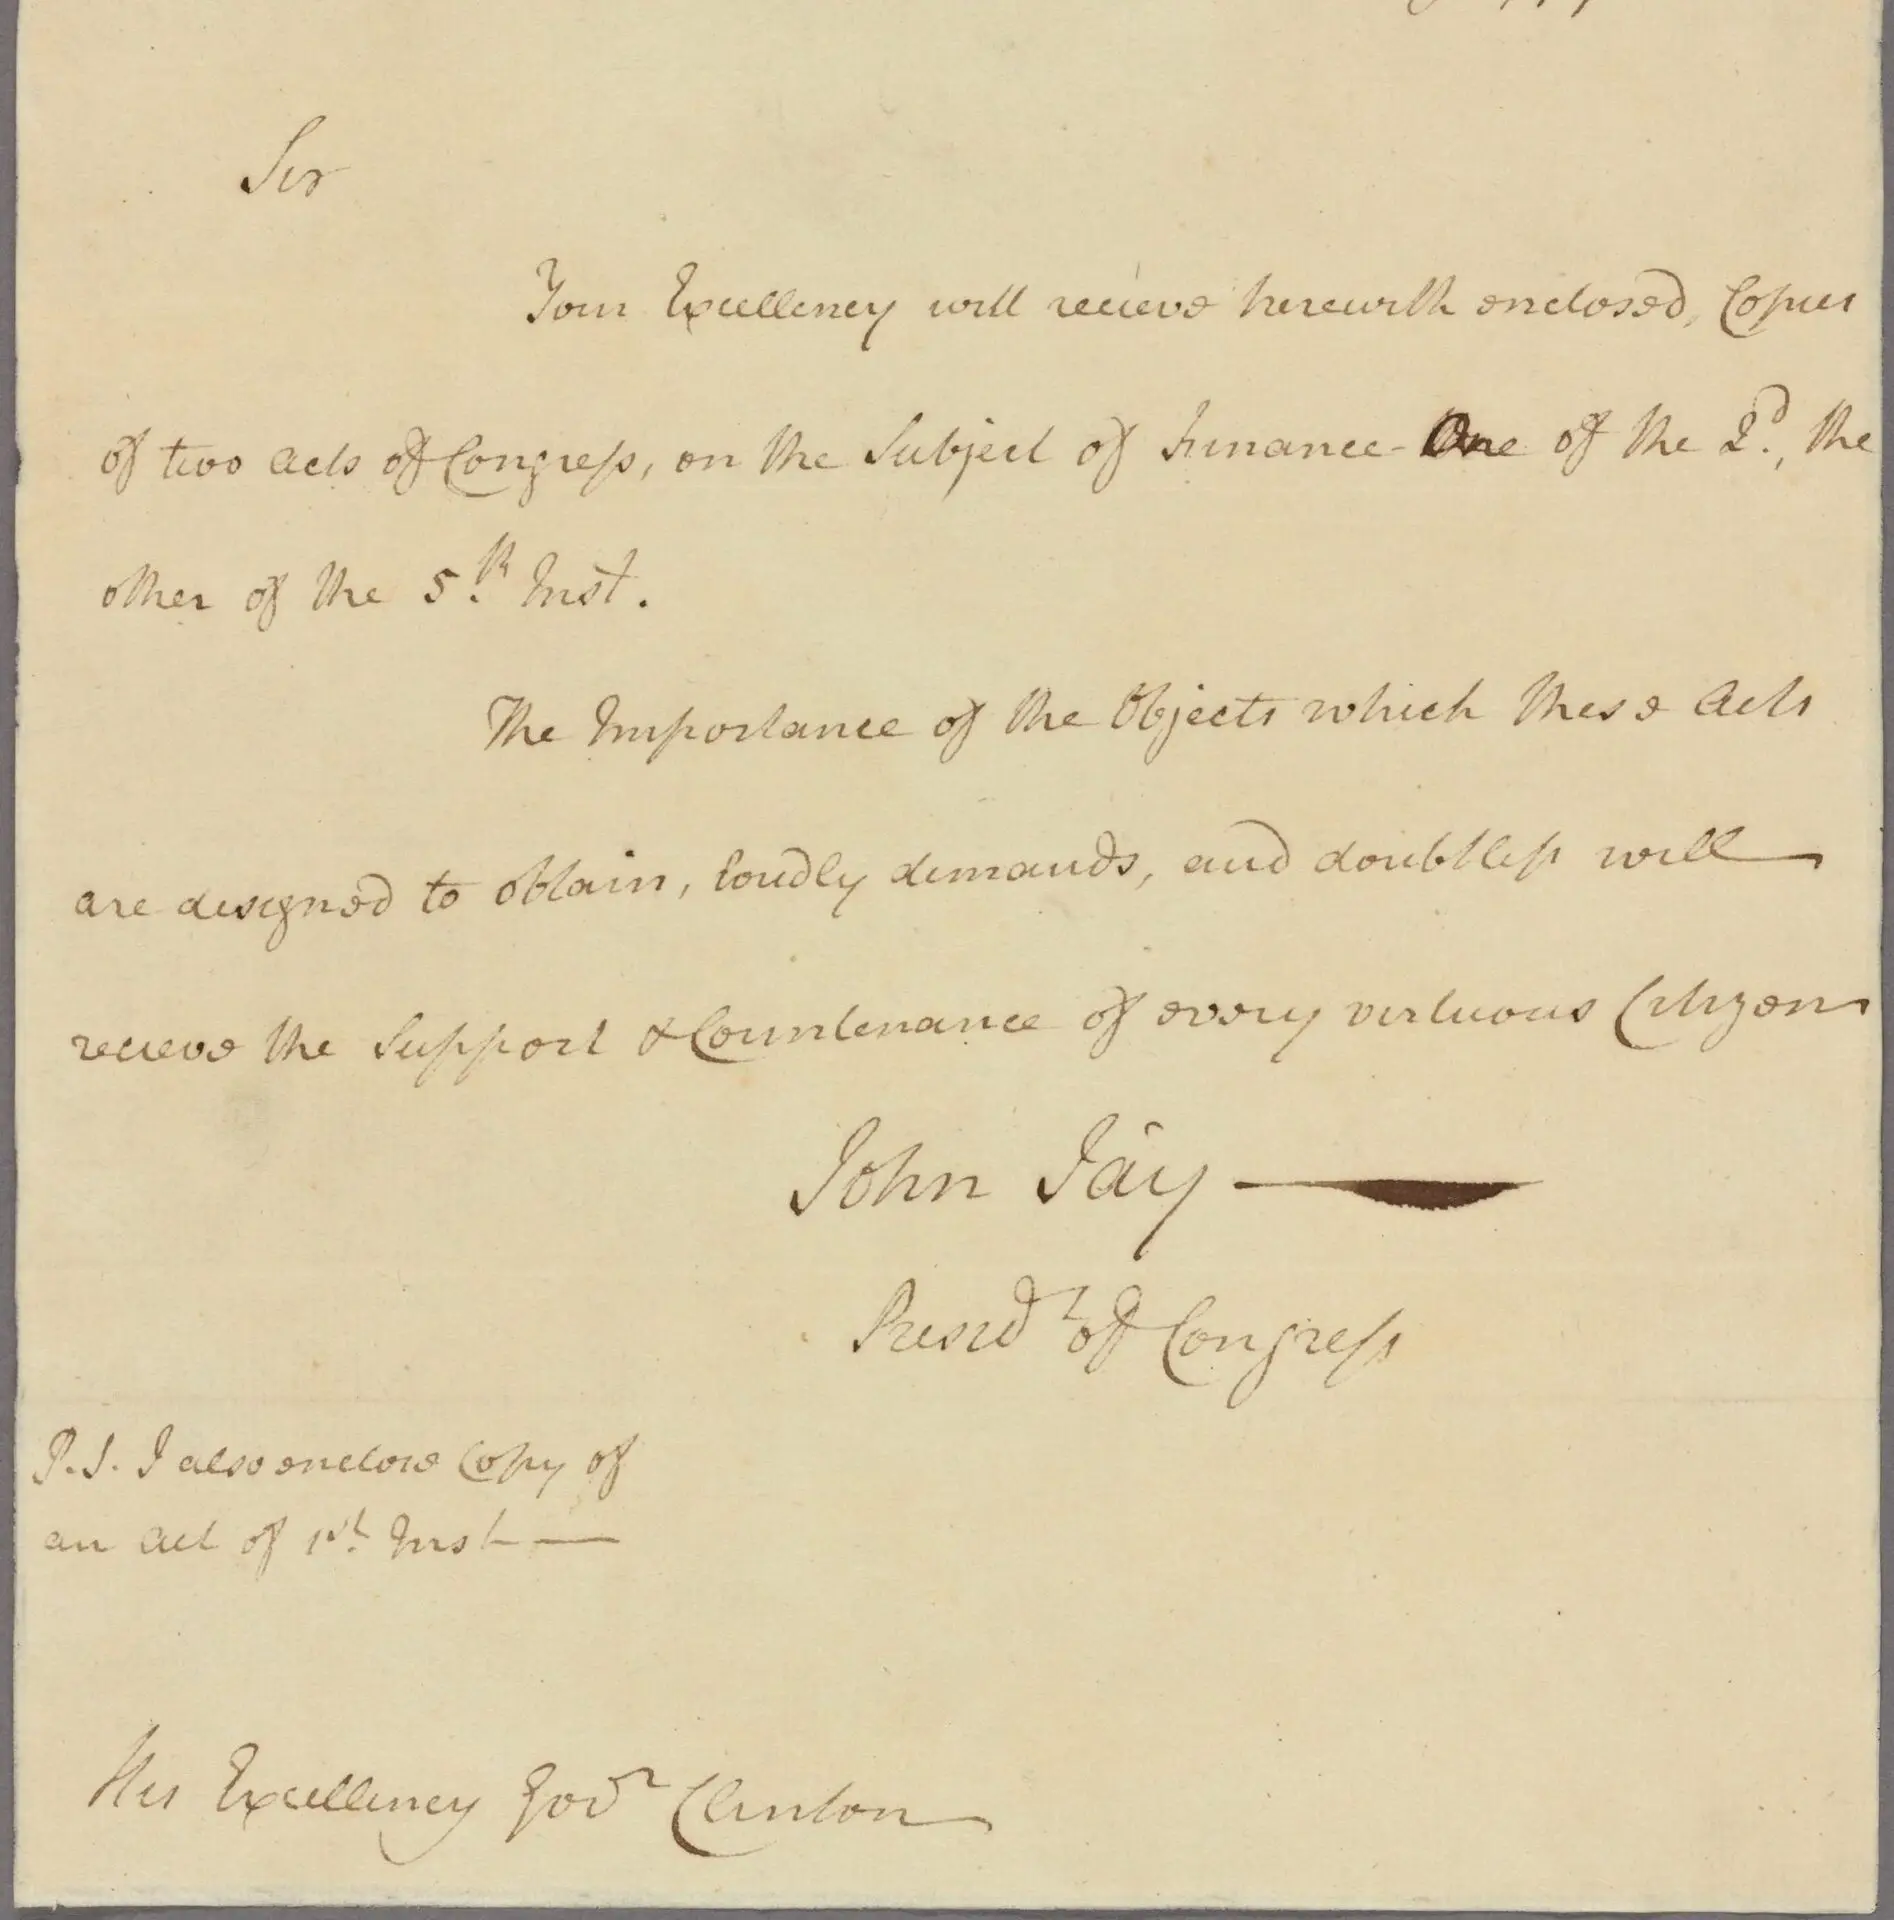 Sir
Your Excellency will recieve herewith enclosed, Copies
of two acts of Congress, on the Subject of Finance - One of the 2d., the
other of the 5.th Inst.
The Importance of the Objects which these Acts
are designed to obtain, loudly demands, and doubtless will
recieve the Support & Countenance of every virtuous Citizen
John Jay
Presidt of Congress
P.S. I also enclose Copy of
an Act of 1st Inst
His Excellency Govr Clinton